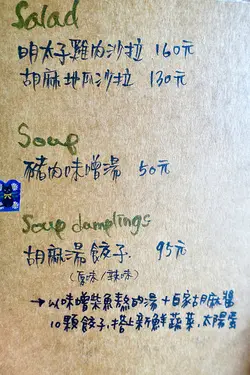 Salad
明太子雞肉沙拉 160元
胡麻地瓜沙拉 130元
Soup
豬肉味噌湯 50元
Soup damplings
胡麻湯餃子. 95元
(原味/辣味)
→以味噌柴魚熬的湯+自家胡麻醬
10顆餃子,搭上新鮮蔬菜,太陽蛋